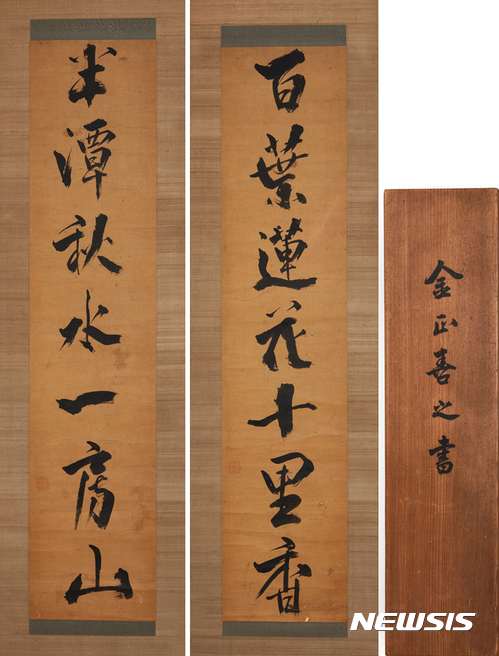 百葉蓮花十里香
半潭秋水一房山
金正喜之書
NEWSIS